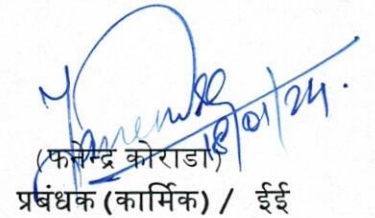 18/01/24.
(फनेन्द्र कोराडा)
प्रबंधक (कार्मिक) / ईई